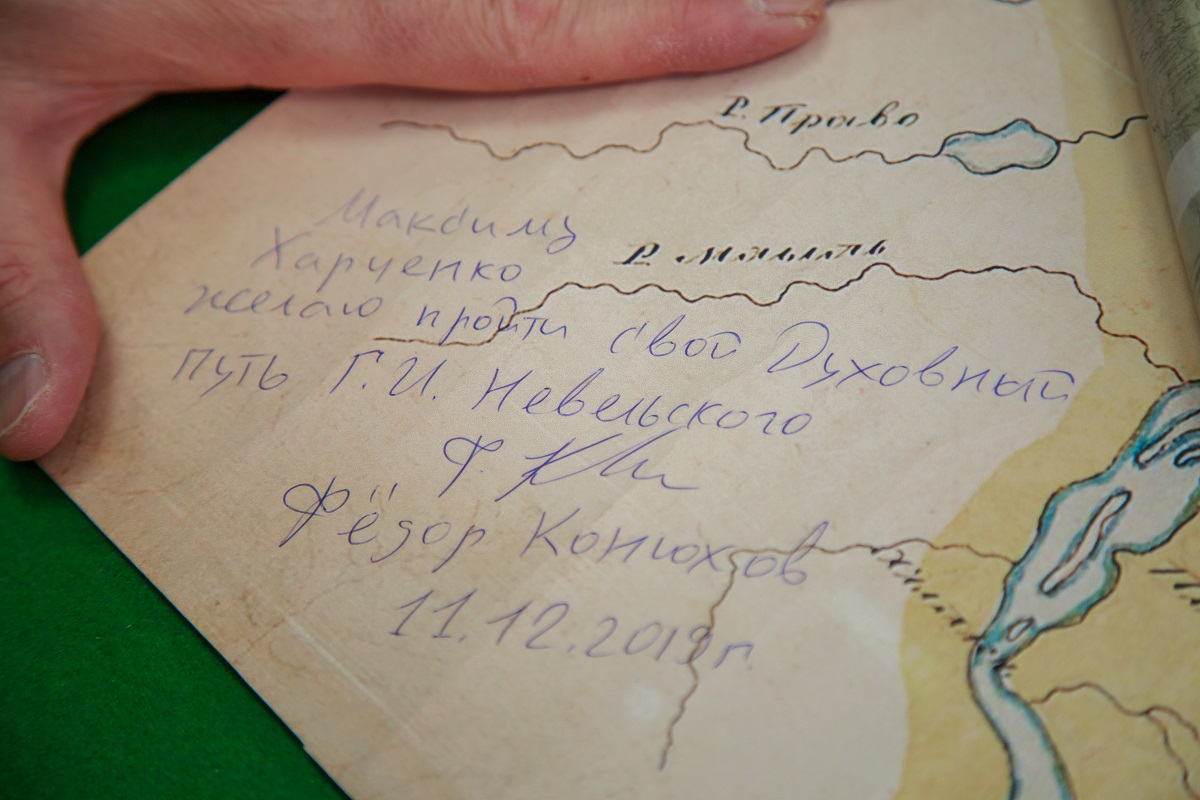 Р. Прыво
Максиму
Харченко
Р.
желаю пройти свой Духовный
путь Г.И. Невельского
Ф. К
Фёдор Конюхов
11.12.2019 г.